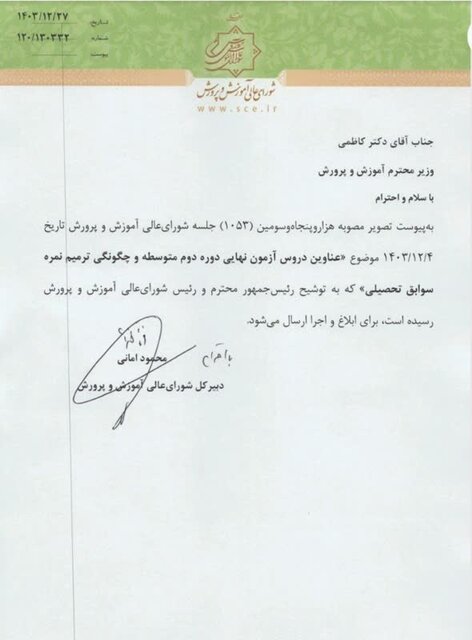 تاریخ: ۱۴۰۳/۱۲/۲۷
شماره: ۱۲۰/۱۳۰۳۳۲
پیوست:
شورای عالی آموزش و پرورش
www.sce.ir
جناب آقای دکتر کاظمی
وزیر محترم آموزش و پرورش
با سلام و احترام
به‌پیوست تصویر مصوبه هزاروپنجاه‌وسومین (۱۰۵۳) جلسه شورای‌عالی آموزش و پرورش تاریخ
۱۴۰۳/۱۲/۴ موضوع «عناوین دروس آزمون نهایی دوره دوم متوسطه و چگونگی ترمیم نمره
سوابق تحصیلی» که به توشیح رئیس‌جمهور محترم و رئیس شورای‌عالی آموزش و پرورش
رسیده است، برای ابلاغ و اجرا ارسال می‌شود.
با احترام
محمود امانی
دبیرکل شورای‌عالی آموزش و پرورش